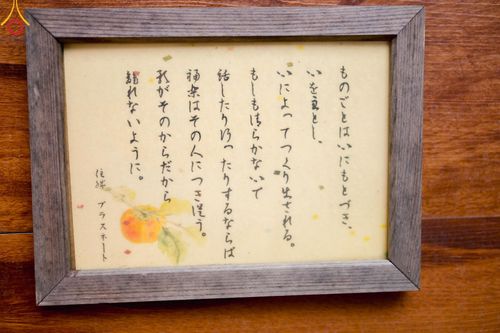 ものごとは心にもとづき、
心を主とし、
心によってつくり出される。
もしも清らかな心で
話したり行ったりするならば
福楽はその人につき従う。
影がそのからだから
離れないように。
プラスネート